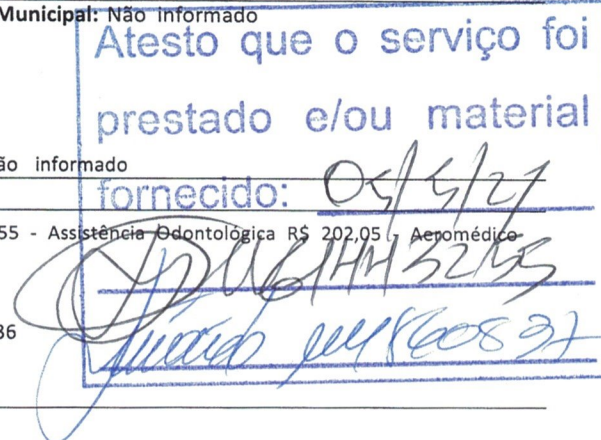 Municipal: Não informado
Atesto que o serviço foi
prestado e/ou material
ão informado
fornecido: 05/5/21
55 - Assistência Odontológica R$ 202,05 - Aeromédico
36